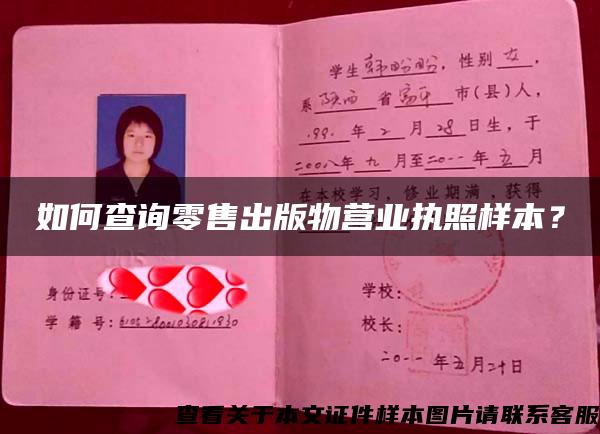 学生韩盼盼，性别女，
系陕西省富平市(县)人，
1991年2月28日生，于
二00八年九月至二0一一年五月
在本校学习，修业期满，获得
如何查询零售出版物营业执照样本？
身份证号：
学籍号：
学校：
校长：
二0一一年五月二十日
查看关于本文证件样本图片请联系客服